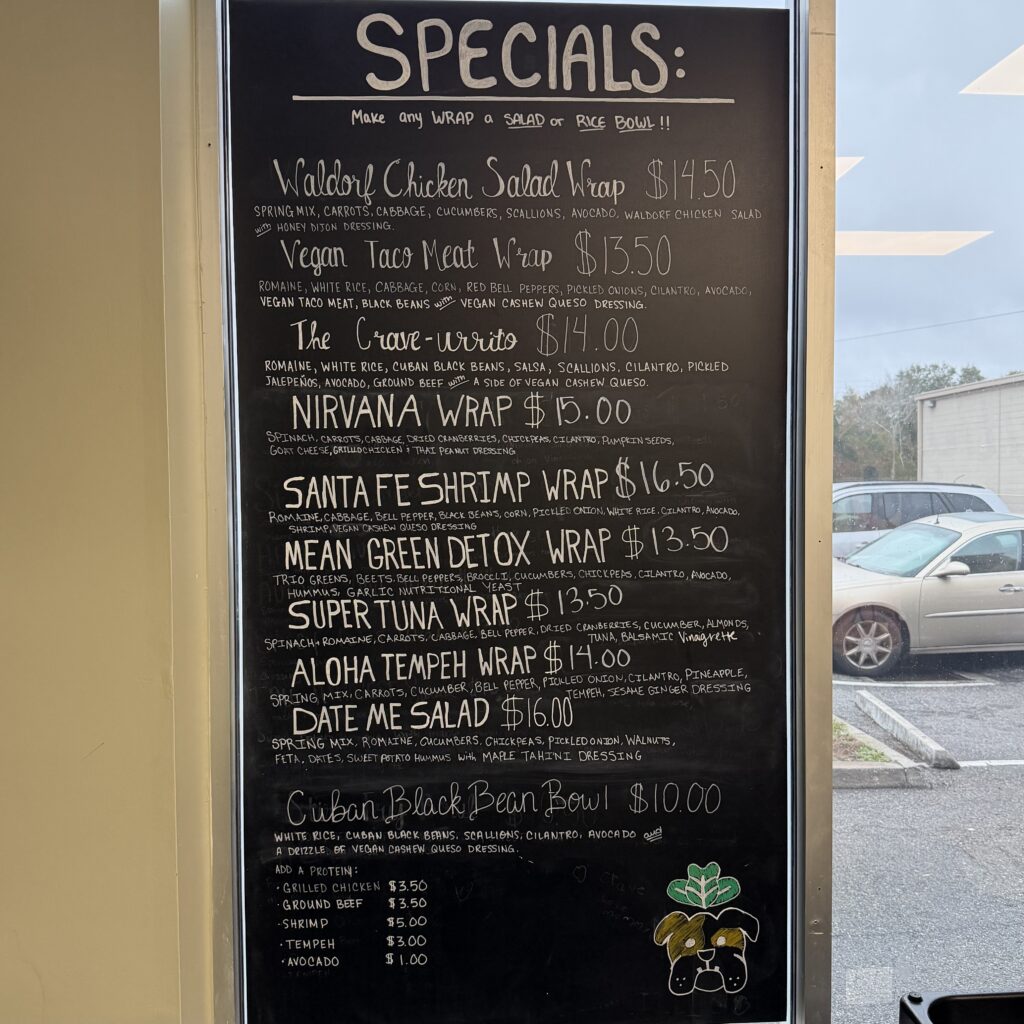 SPECIALS:
Make any WRAP a SALAD or RICE BOWL !!
Waldorf Chicken Salad Wrap $14.50
SPRING MIX, CARROTS, CABBAGE, CUCUMBERS, SCALLIONS, AVOCADO, WALDORF CHICKEN SALAD
with HONEY DIJON DRESSING.
Vegan Taco Meat Wrap $13.50
ROMAINE, WHITE RICE, CABBAGE, CORN, RED BELL PEPPERS, PICKLED ONIONS, CILANTRO, AVOCADO,
VEGAN TACO MEAT, BLACK BEANS with VEGAN CASHEW QUESO DRESSING.
The Crave-urrito $14.00
ROMAINE, WHITE RICE, CUBAN BLACK BEANS, SALSA, SCALLIONS, CILANTRO, PICKLED
JALEPEÑOS, AVOCADO, GROUND BEEF with A SIDE OF VEGAN CASHEW QUESO.
NIRVANA WRAP $15.00
SPINACH, CARROTS, CABBAGE, DRIED CRANBERRIES, CHICKPEAS, CILANTRO, PUMPKIN SEEDS,
GOAT CHEESE, GRILLED CHICKEN & THAI PEANUT DRESSING
SANTA FE SHRIMP WRAP $16.50
ROMAINE, CABBAGE, BELL PEPPER, BLACK BEANS, CORN, PICKLED ONION, WHITE RICE, CILANTRO, AVOCADO,
SHRIMP, VEGAN CASHEW QUESO DRESSING
MEAN GREEN DETOX WRAP $13.50
TRIO GREENS, BEETS, BELL PEPPERS, BROCCLI, CUCUMBERS, CHICKPEAS, CILANTRO, AVOCADO,
HUMMUS, GARLIC NUTRITIONAL YEAST
SUPER TUNA WRAP $13.50
SPINACH & ROMAINE, CARROTS, CABBAGE, BELL PEPPER, DRIED CRANBERRIES, CUCUMBER, ALMONDS,
TUNA, BALSAMIC Vinagrette
ALOHA TEMPEH WRAP $14.00
SPRING MIX, CARROTS, CUCUMBER, BELL PEPPER, PICKLED ONION, CILANTRO, PINEAPPLE,
TEMPEH, SESAME GINGER DRESSING
DATE ME SALAD $16.00
SPRING MIX, ROMAINE, CUCUMBERS, CHICKPEAS, PICKLED ONION, WALNUTS,
FETA, DATES, SWEET POTATO HUMMUS with MAPLE TAHINI DRESSING
Cuban Black Bean Bowl $10.00
WHITE RICE, CUBAN BLACK BEANS, SCALLIONS, CILANTRO, AVOCADO and
A DRIZZLE OF VEGAN CASHEW QUESO DRESSING.
ADD A PROTEIN:
· GRILLED CHICKEN $3.50
· GROUND BEEF $3.50
· SHRIMP $5.00
· TEMPEH $3.00
· AVOCADO $1.00